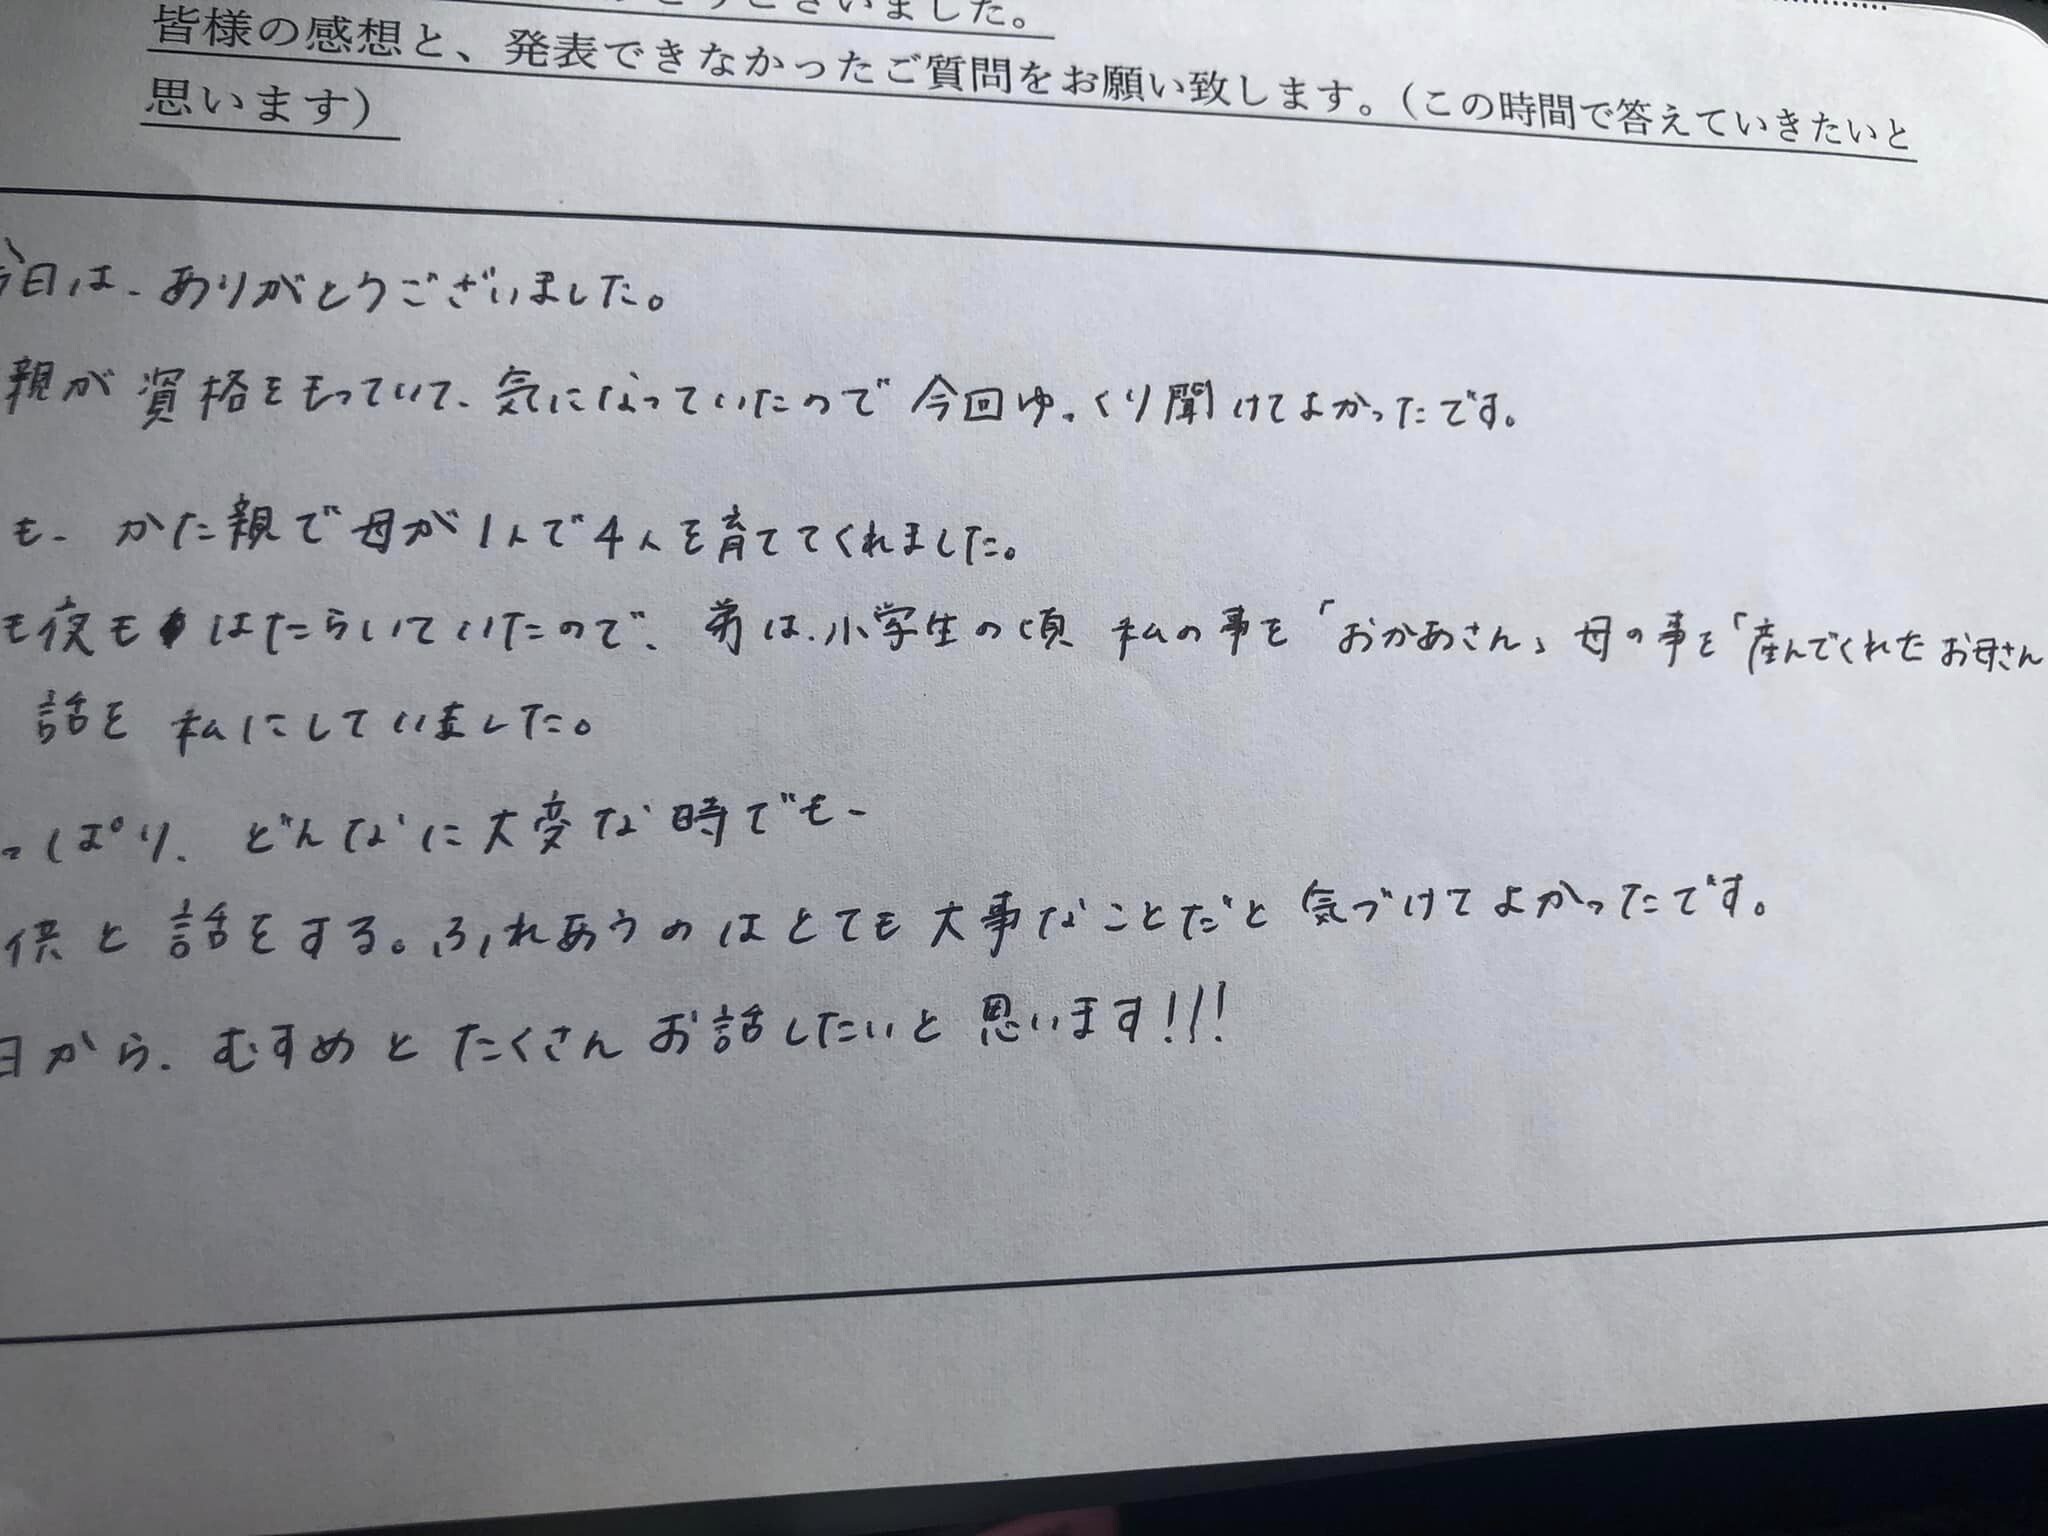 ございました。
皆様の感想と、発表できなかったご質問をお願い致します。(この時間で答えていきたいと
思います)
今日は、ありがとうございました。
親が資格をもっていて、気になっていたので今回ゆっくり聞けてよかったです。
も、かた親で母が1人で4人を育ててくれました。
も夜もはたらいていたので、弟は、小学生の頃 私の事を「おかあさん」母の事を「産んでくれたお母さん
話を私にしていました。
っぱり、どんなに大変な時でも、
供と話をする。ふれあうのはとても大事なことだと気づけてよかったです。
日から、むすめとたくさんお話したいと思います!!!